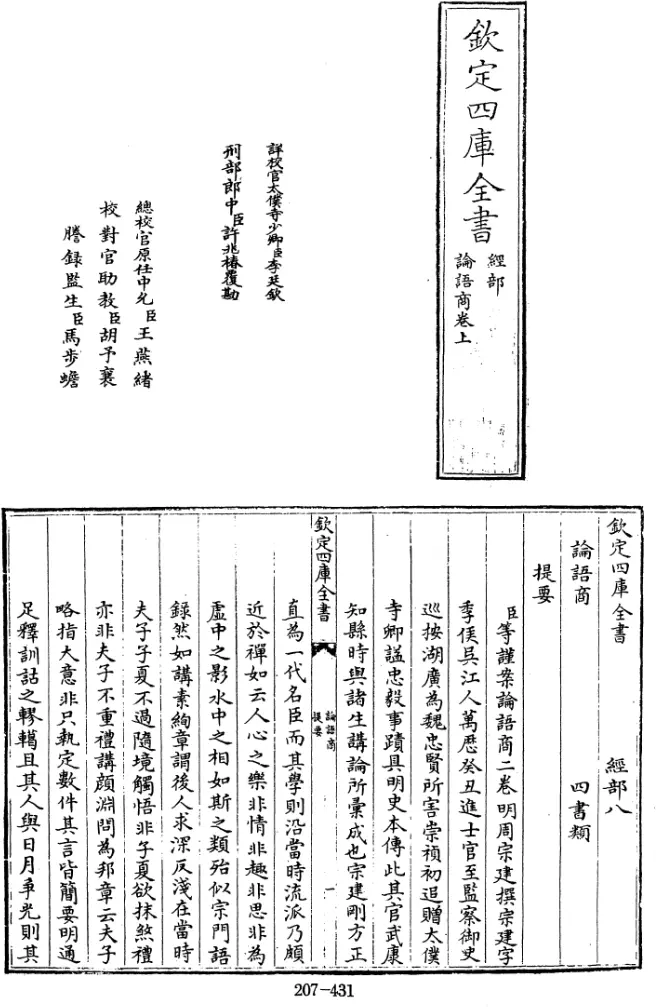 欽定四庫全書
經部
論語商卷上
詳校官太僕寺少卿臣李廷欽
刑部郎中臣許兆椿覆勘
總校官原任中允臣王燕緒
校對官助教臣胡予襄
謄錄監生臣馬步蟾
欽定四庫全書 經部八
論語商 四書類
提要
臣等謹案論語商二卷明周宗建撰宗建字
季侯吳江人萬歷癸丑進士官至監察御史
巡按湖廣為魏忠賢所害崇禎初追贈太僕
寺卿諡忠毅事蹟具明史本傳此其官武康
知縣時與諸生講論所彙成也宗建剛方正
欽定四庫全書
論語商
提要
一
直為一代名臣而其學則沿當時流派乃頗
近於禪如云人心之樂非情非趣非思非為
虛中之影水中之相如斯之類殆似宗門語
錄然如講素絢章謂後人求深反淺在當時
夫子子夏不過隨境觸悟非子夏欲抹煞禮
亦非夫子不重禮講顔淵問為邦章云夫子
略指大意非只執定數件其言皆簡要明通
足釋訓詁之轇轕且其人與日月爭光則其
207-431